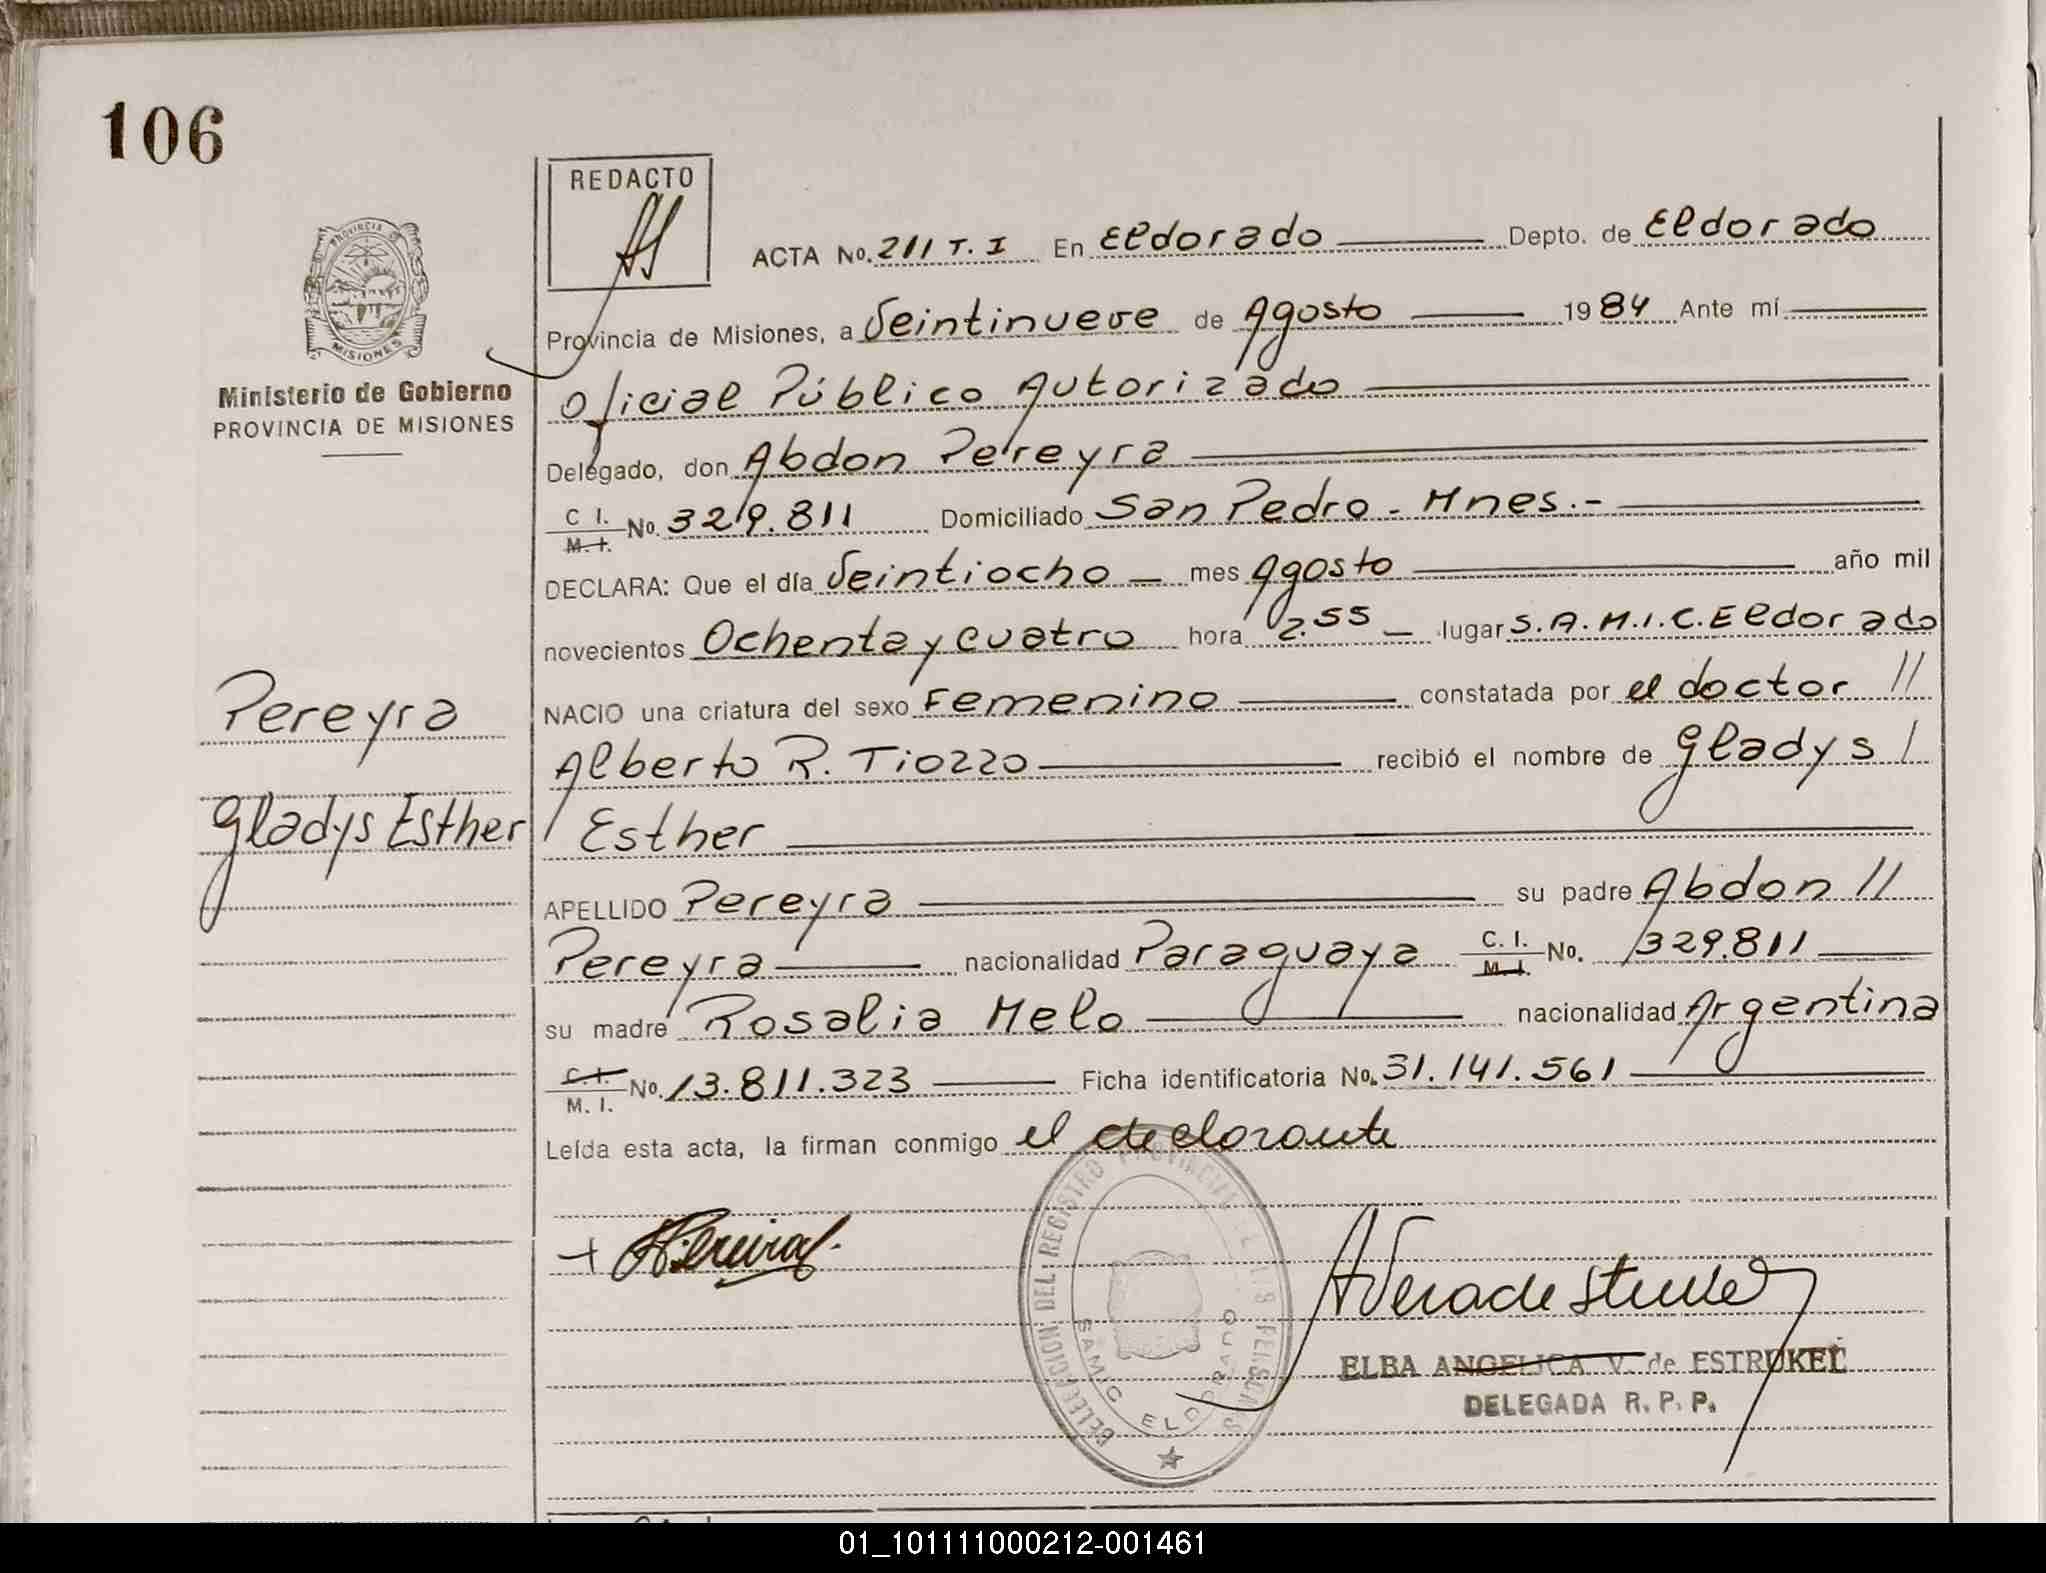 106
REDACTO
PROVINCIA DE
MISIONES
Ministerio de Gobierno
PROVINCIA DE MISIONES
ACTA No. 211 T. I En Eldorado Depto. de Eldorado
Provincia de Misiones, a Veintinueve de Agosto 1984 Ante mí
Oficial Público Autorizado
Delegado, don Abdon Pereyra
C I. M. I. No. 329.811 Domiciliado San Pedro - Mnes.-
DECLARA: Que el día Veintiocho mes Agosto año mil
novecientos Ochenta y cuatro hora 2.55 lugar S.A.M.I.C. Eldorado
NACIO una criatura del sexo Femenino constatada por el doctor //
Alberto R. Tiozzo recibió el nombre de Gladys /
/ Esther
Pereyra
Gladys Esther
APELLIDO Pereyra su padre Abdon //
Pereyra nacionalidad Paraguaya C. I. M. I. No. 329.811
su madre Rosalia Melo nacionalidad Argentina
C. I. M. I. No. 13.811.323 Ficha identificatoria No. 31.141.561
Leída esta acta, la firman conmigo el declarante
DELEGACION DEL REGISTRO PROVINCIAL DE LAS PERSONAS
SAMIC ELDORADO
ELBA ANGELICA V. de ESTRUKEL
DELEGADA R. P. P.
01_101111000212-001461